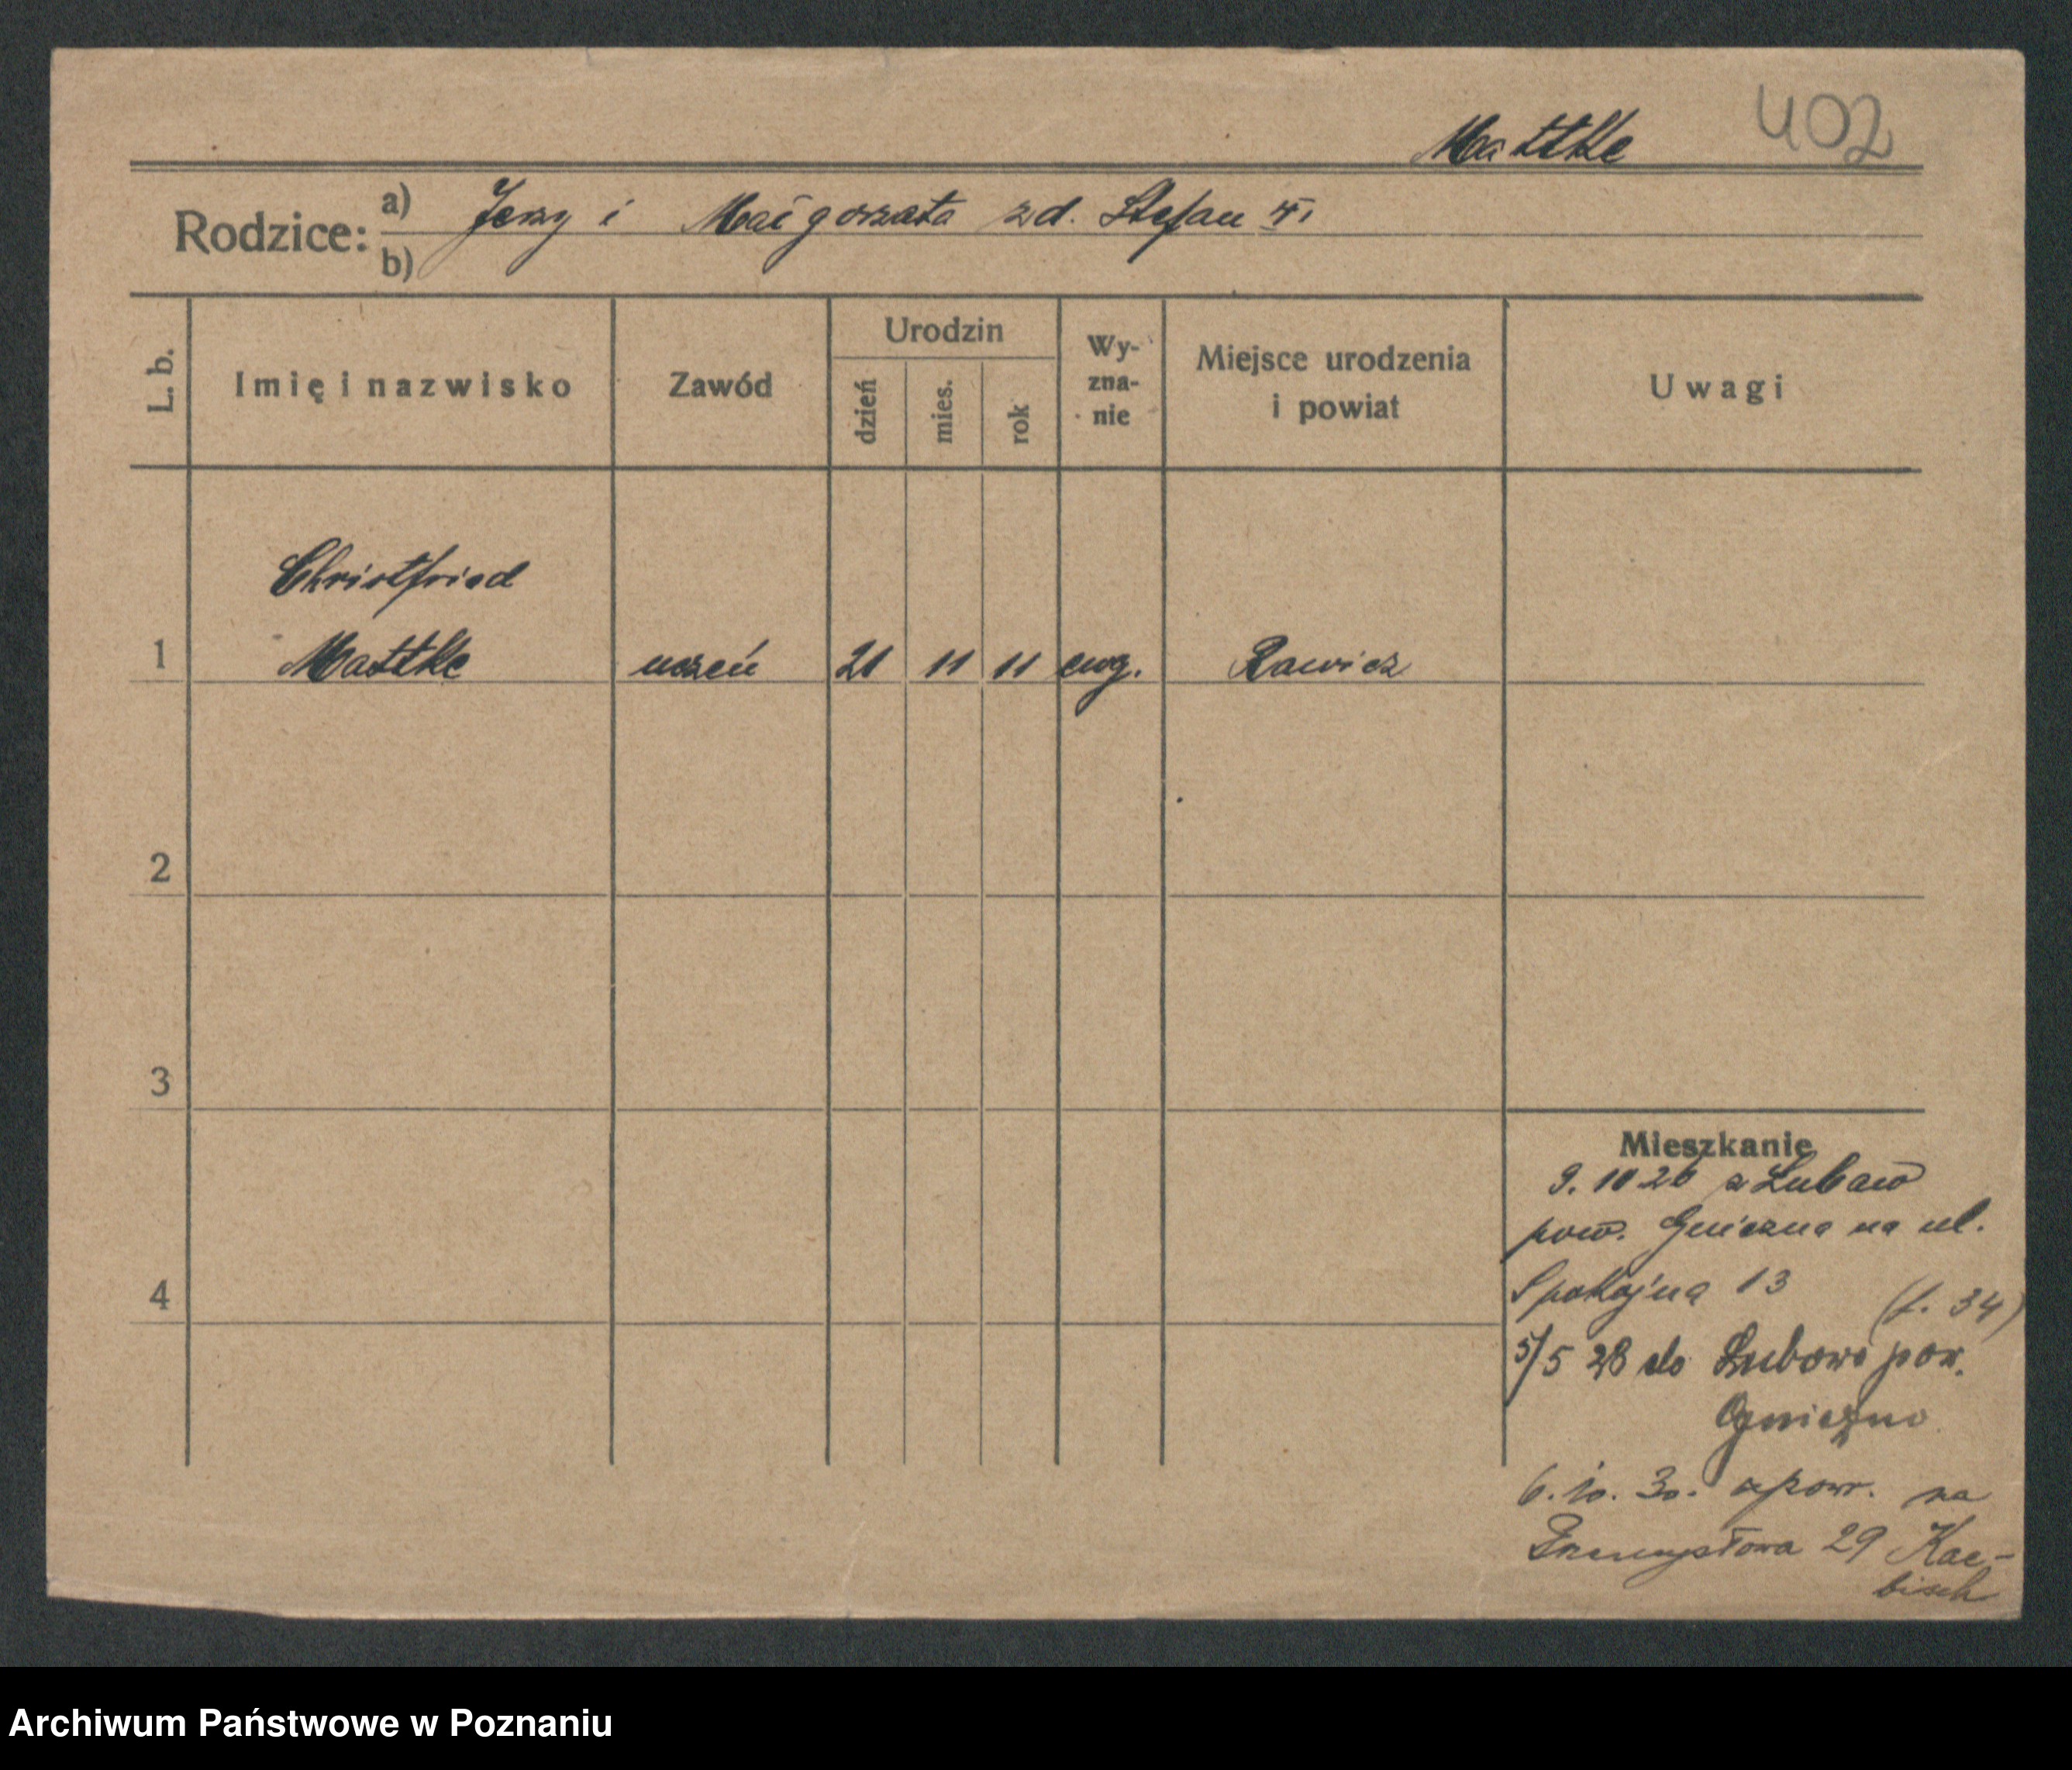 Mattke 402
Rodzice: a) Jerzy i Małgorzata zd. Stefan
b)
L. b. Imię i nazwisko Zawód Urodzin dzień mies. rok Wy-zna-nie Miejsce urodzenia i powiat Uwagi
Christfried
1 Mattke uczeń 21 11 11 ewg. Rawicz
2
3
Mieszkanie
9. 10 26 z Lubow
pow. Gniezna na ul.
4 Spokojna 13 (f. 34)
5/5 28 do Lubowo pow.
Gniezno
6. 10. 30. zpowr. na
Przemysłowa 29 Kae-
bisch
Archiwum Państwowe w Poznaniu